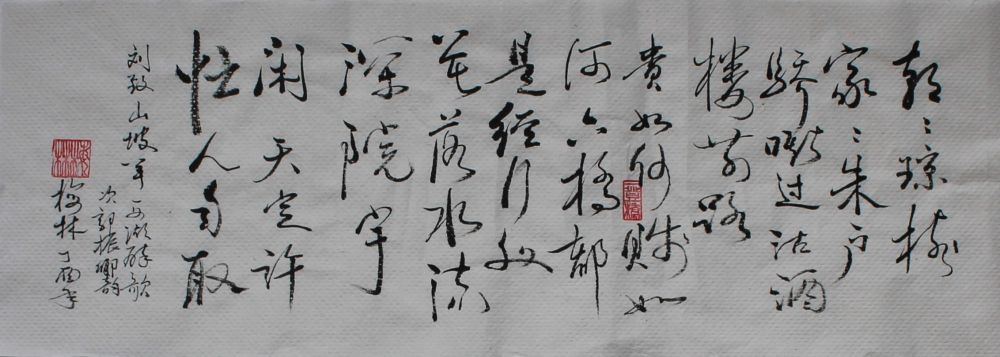 朝〻琼树
家〻朱户
骄嘶过沽酒
楼前路
贵如何贱如
何六桥都
是经行处
花落水流
深院宇
闲天定许
忙人自取
刘致山坡羊 西湖醉歌
次郭振卿韵
梅林丁酉年